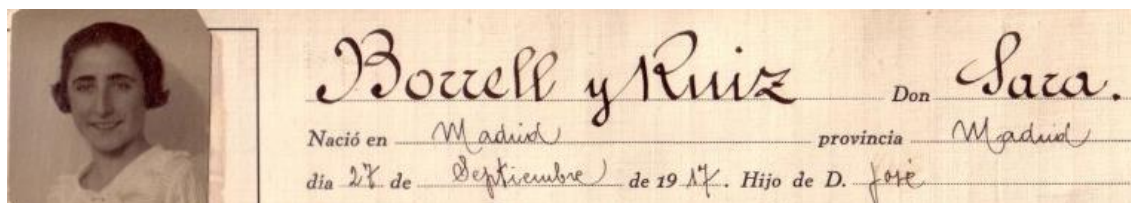 Borrell y Ruiz Don Sara.
Nació en Madrid provincia Madrid
día 27 de Septiembre de 1917. Hijo de D. José